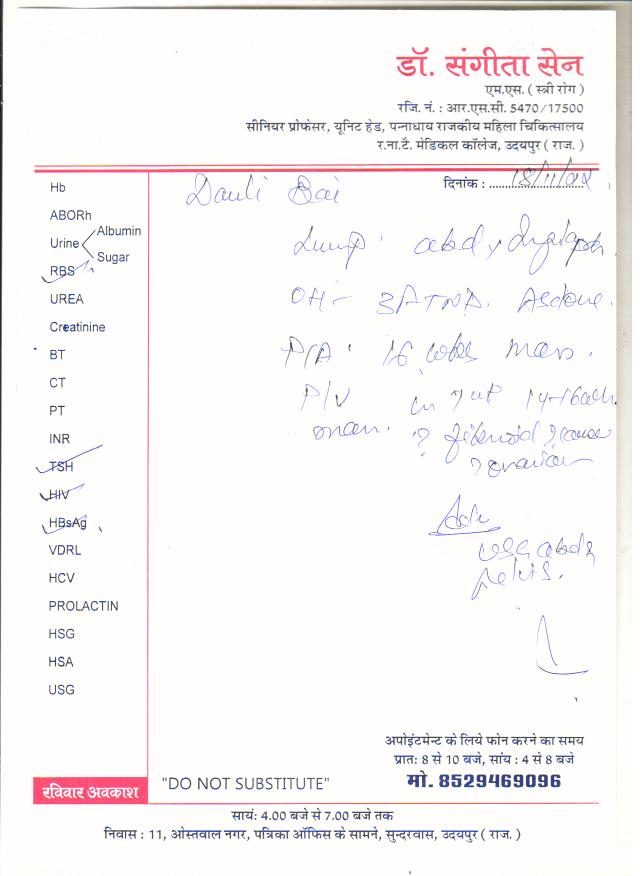 डॉ. संगीता सेन
एम.एस. ( स्त्री रोग )
रजि. नं. : आर.एस.सी. 5470/17500
सीनियर प्रोफेसर, यूनिट हेड, पन्नाधाय राजकीय महिला चिकित्सालय
र.ना.टै. मेडिकल कॉलेज, उदयपुर ( राज. )
दिनांक :
Hb
ABORh
Urine
Albumin
Sugar
RBS
UREA
Creatinine
BT
CT
PT
INR
TSH
HIV
HBsAg
VDRL
HCV
PROLACTIN
HSG
HSA
USG
Bai
Lump abd
OH - 3
P/A : 16 wks
P/V
? fibroid ?
? ovarian
Adv
USG abd &
pelvis.
अपोइंटमेन्ट के लिये फोन करने का समय
प्रातः 8 से 10 बजे, सांय : 4 से 8 बजे
मो. 8529469096
रविवार अवकाश
"DO NOT SUBSTITUTE"
सायं: 4.00 बजे से 7.00 बजे तक
निवास : 11, ओस्तवाल नगर, पत्रिका ऑफिस के सामने, सुन्दरवास, उदयपुर ( राज. )